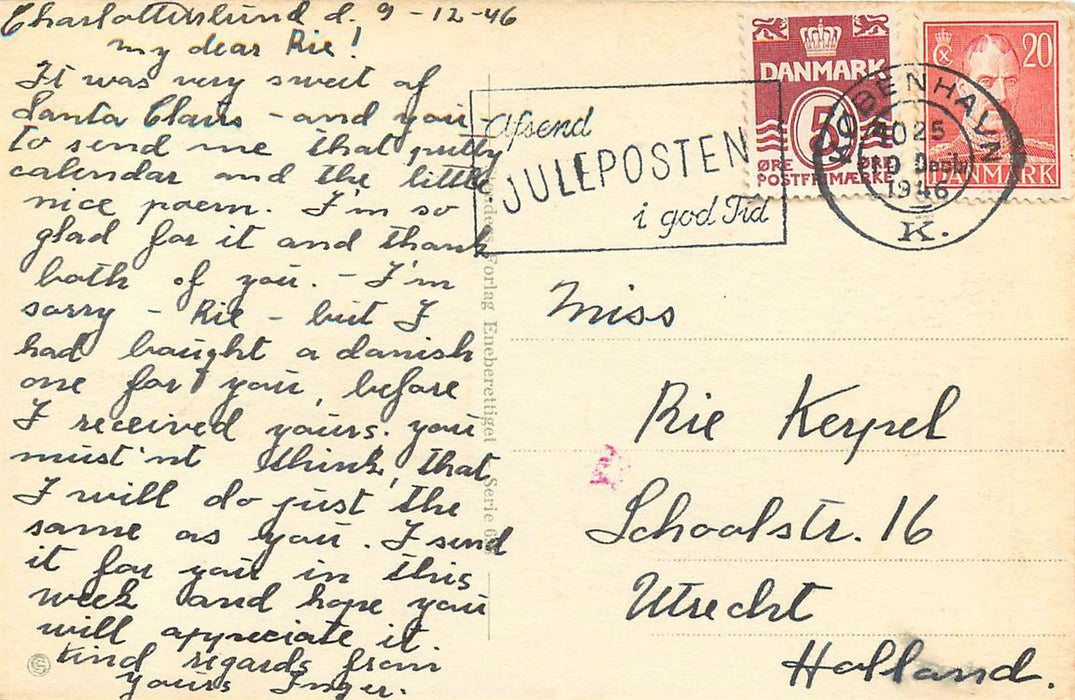 Charlottenlund d. 9-12-46
my dear Rie!
It was very sweet of
Santa Claus - and you -
to send me that pretty
calendar and the little
nice poem. I'm so
glad for it and thank
both of you. - I'm
sorry - Rie - but I
had bought a danish
one for you, before
I received yours. you
must'nt think, that
I will do just the
same as you. I send
it for you in this
week and hope you
will appreciate it.
Kind regards from
yours Inger.
Forlag Eneberettiget Serie
Afsend
JULEPOSTEN
i god Tid
DANMARK
5
ØRE ØRE
POSTFRIMÆRKE
20
DANMARK
KØBENHAVN
1946
K.
Miss
Rie Kerpel
Schoolstr. 16
Utrecht
Holland.